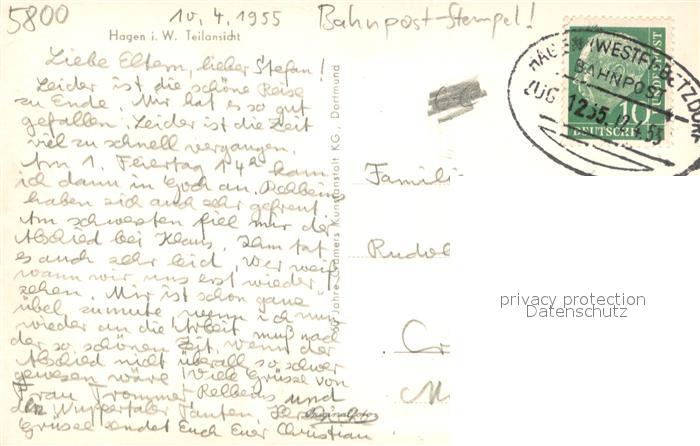 5800
10.4.1955
Bahnpost-Stempel!
Hagen i. W. Teilansicht
Liebe Eltern, lieber Stefan!
Leider ist die schöne Reise
zu Ende. Mir hat es so gut
gefallen. Leider ist die Zeit
viel zu schnell vergangen.
Am 1. Feiertag 14h kam
ich dann in Goch an. Relbeins
haben sich auch sehr gefreut.
Am schwersten fiel mir der
Abschied bei Klaus. Ihm tat
es auch sehr leid. Wer weiß
wann wir uns erst wieder
sehen. Mir ist schon ganz
übel zumute wenn ich nun
wieder an die Arbeit muß nach
der so schönen Zeit, wenn der
Abschied nicht überall so schwer
gewesen wäre! Viele Grüsse von
Frau Trommer Relbeins und
den Wuppertaler Tanten. Herzl.
Grüsse sendet Euch Euer Christian
50 Jahre Cramers Kunstanstalt KG., Dortmund
Originalfoto
HAGEN (WESTF)-BETZDORF
BAHNPOST
ZUG 1235 12.4.55
10
DEUTSCHE
BUNDESPOST
Famili
Rudol
Cr
M
privacy protection
Datenschutz